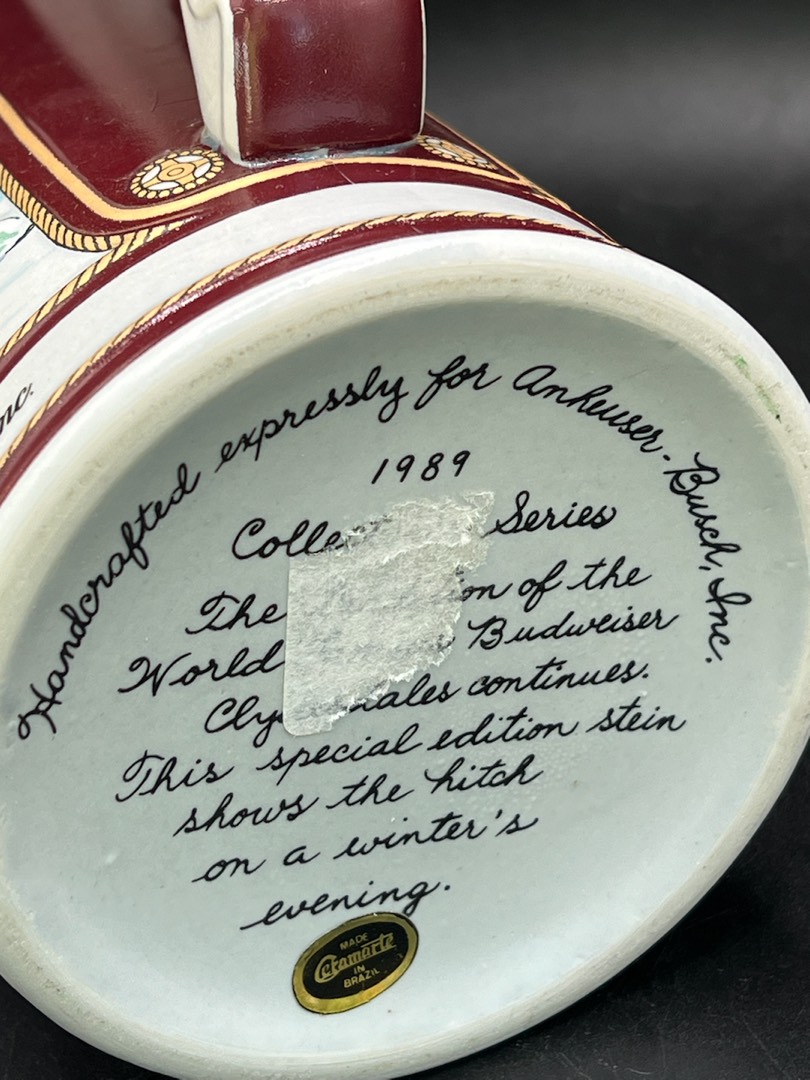 nc.
Handcrafted expressly for Anheuser-Busch, Inc.
1989
Series
The of the
World Budweiser
continues.
This special edition stein
shows the hitch
on a winter's
evening.
MADE
Ceramarte
IN
BRAZIL